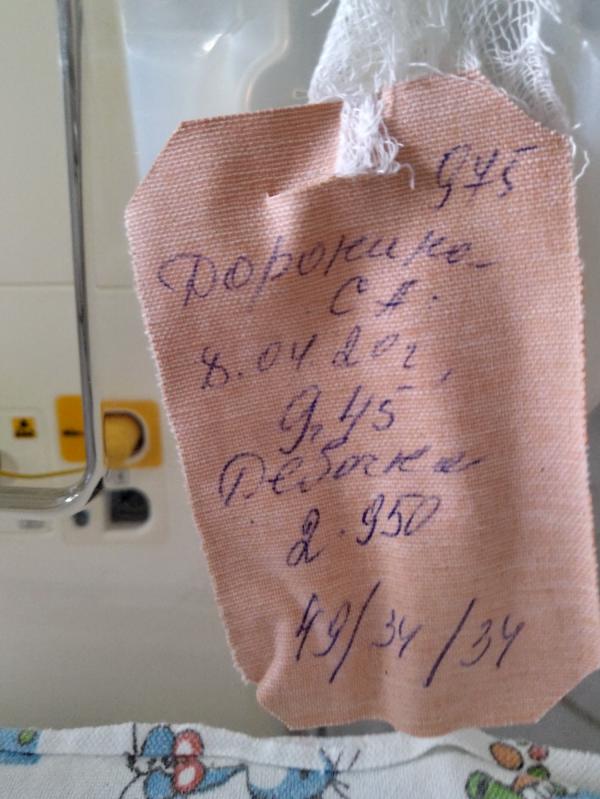 975
Доронина
С А.
8.04 20г.
9ч 45
Девочка
2.950
49/34/34